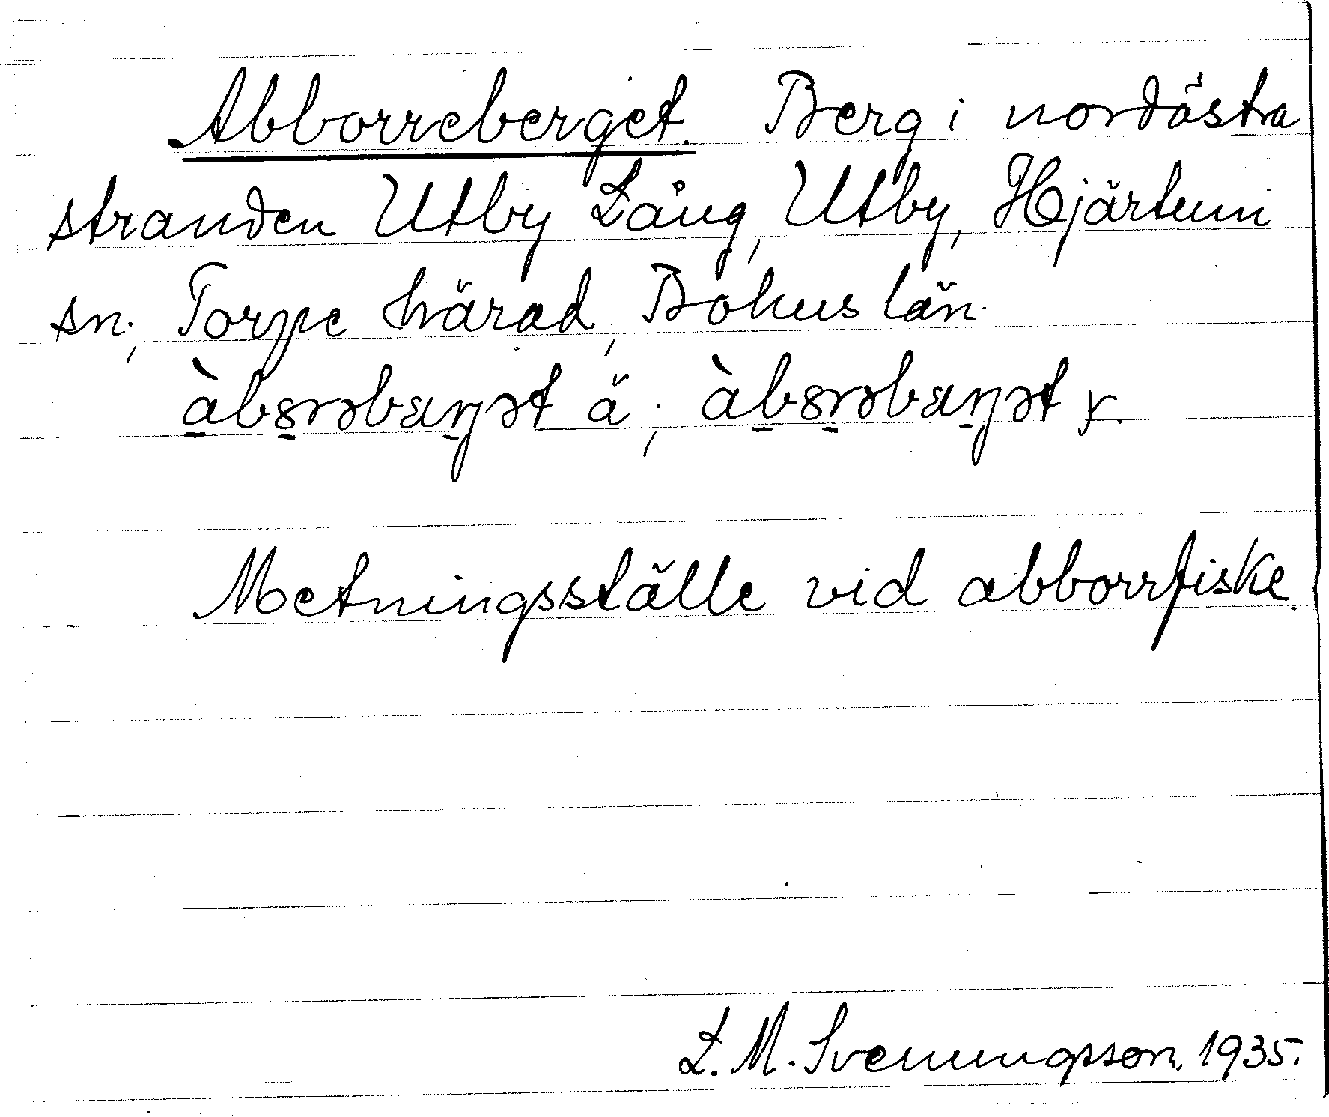 Abborreberget. Berg i nordöstra
stranden Utby Lång, Utby, Hjärtum
sn; Torpe härad, Bohus län.
àbs̱rəbaŋət ä; àbs̱rəbaŋət y.
Metningsställe vid abborrfiske.
L. M. Svenungsson, 1935.